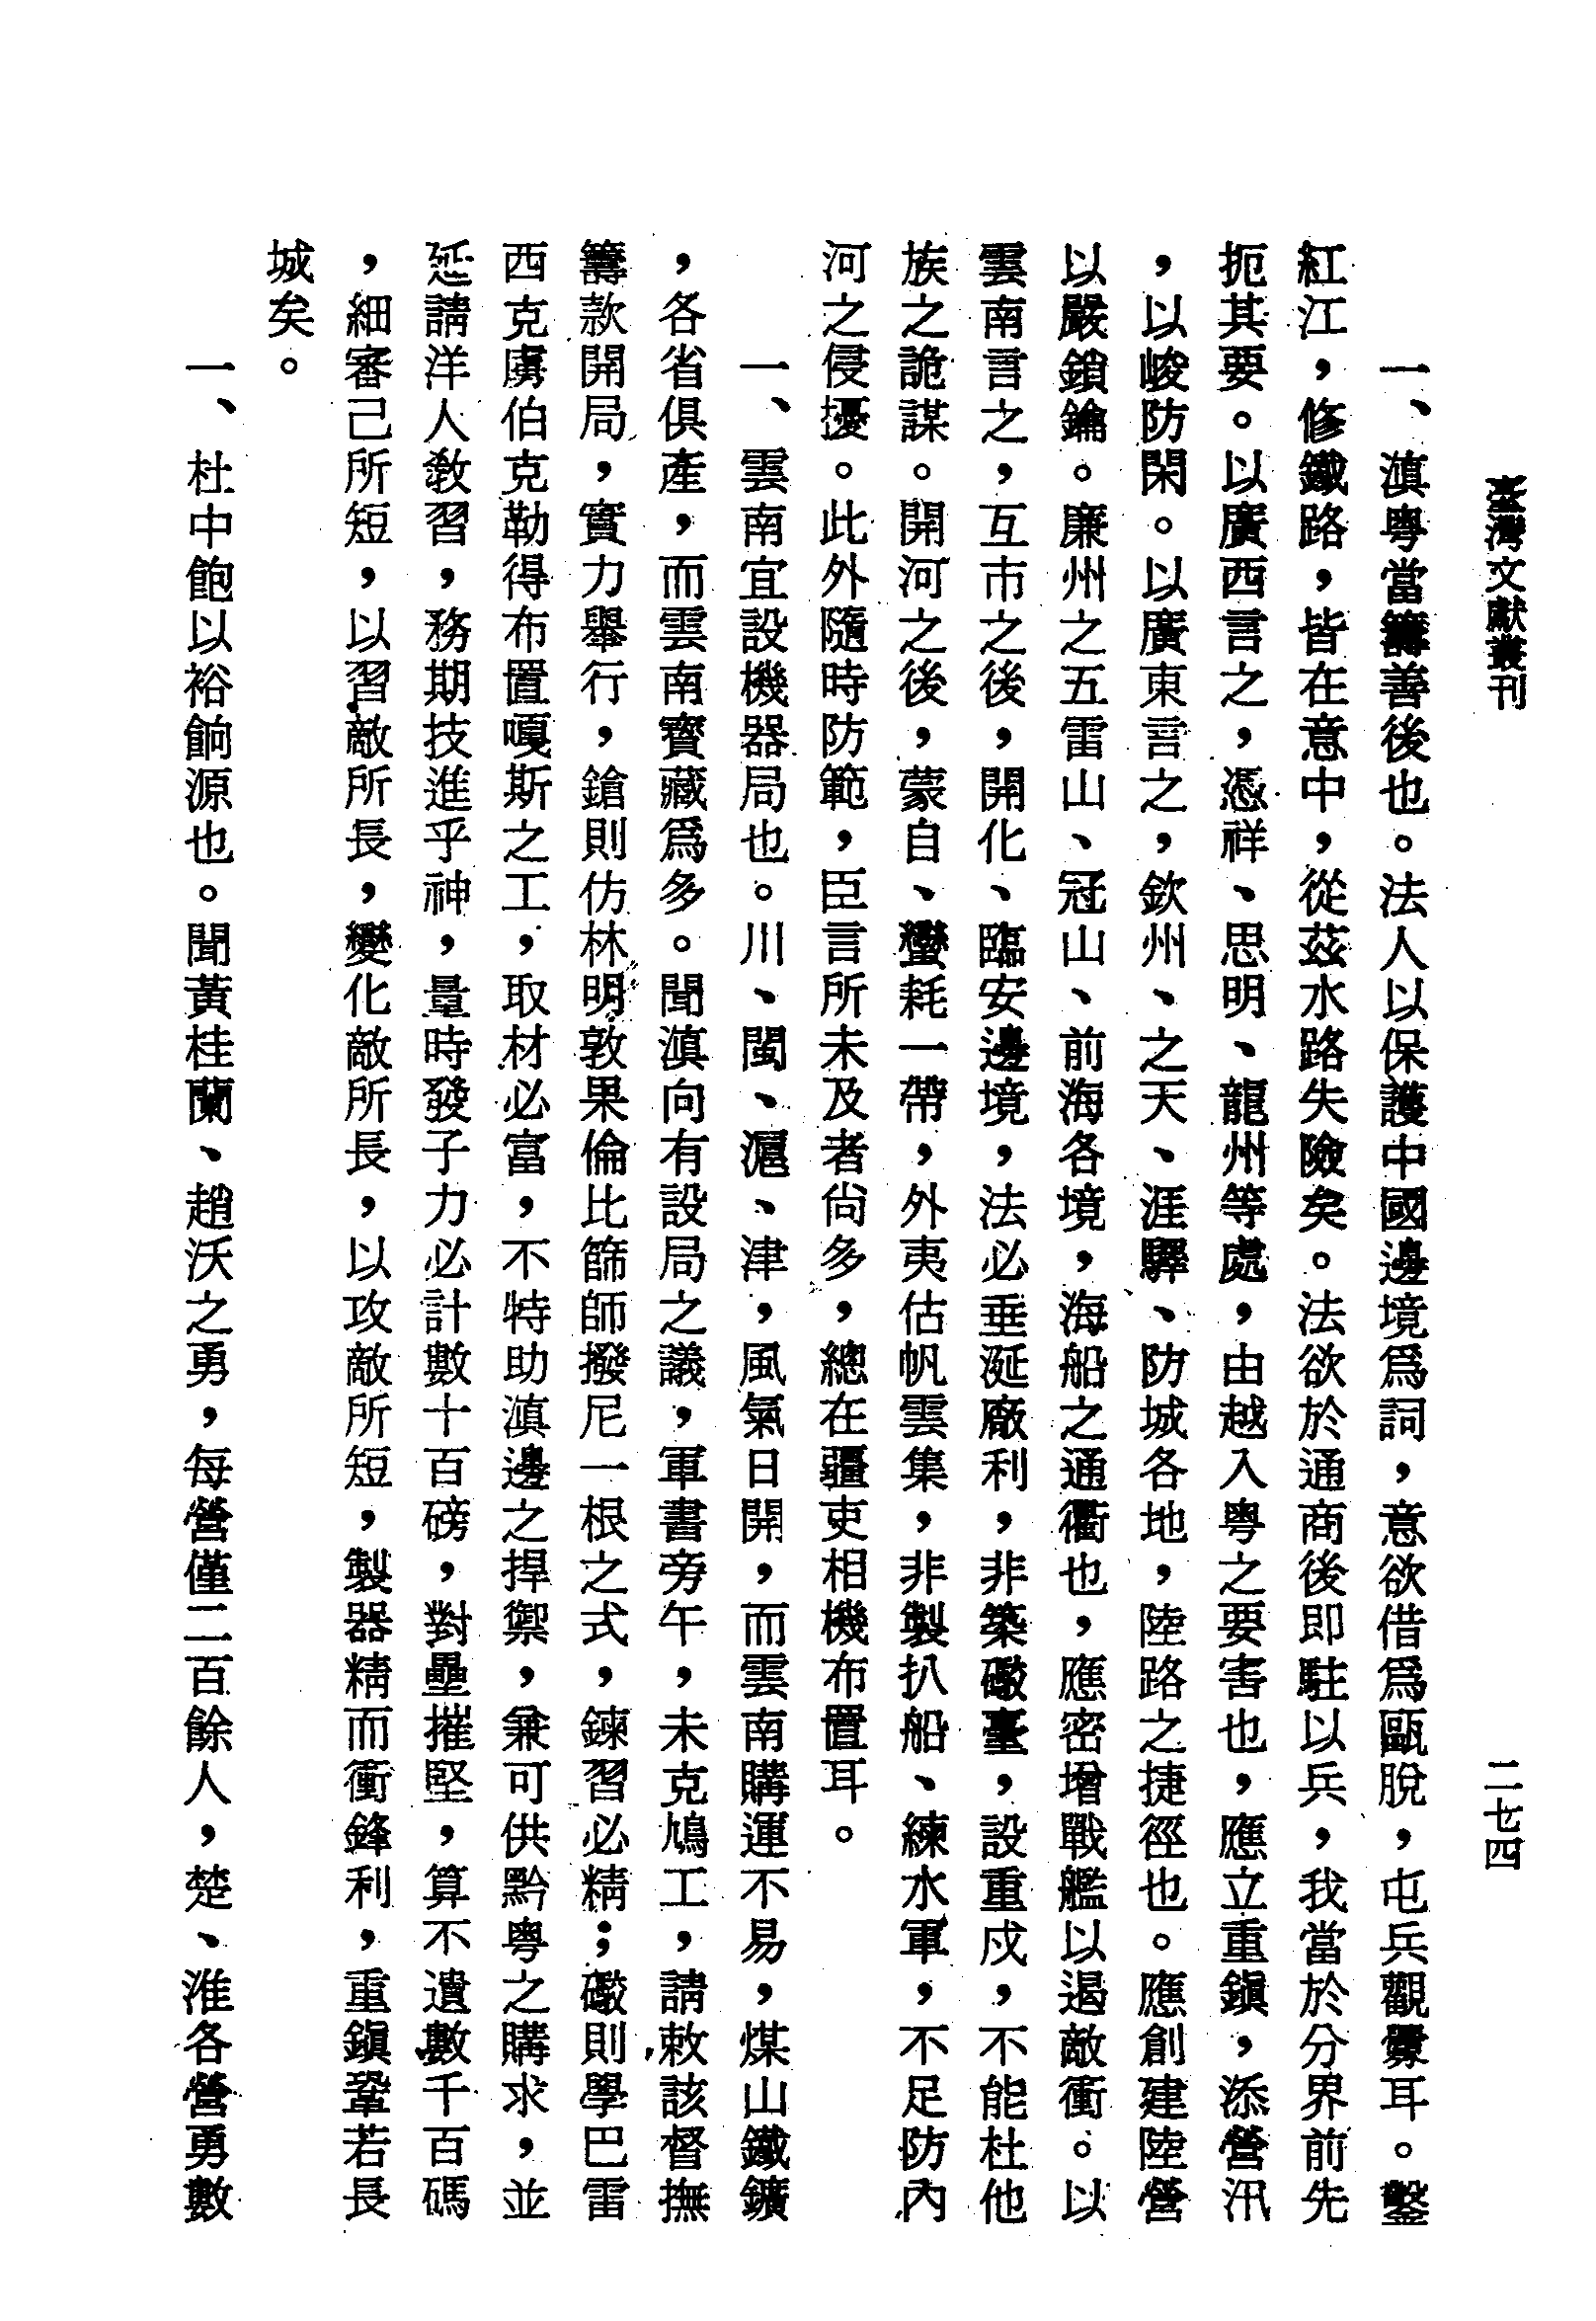 臺灣文獻叢刊
二七四
一、滇粤當籌善後也。法人以保護中國邊境爲詞，意欲借爲甌脫，屯兵觀釁耳。鑿
紅江，修鐵路，皆在意中，從茲水路失險矣。法欲於通商後即駐以兵，我當於分界前先
扼其要。以廣西言之，憑祥、思明、龍州等處，由越入粤之要害也，應立重鎭，添營汛
，以峻防閑。以廣東言之，欽州、之天、涯驛、防城各地，陸路之捷徑也。應創建陸營
以嚴鎖鑰。廉州之五雷山、冠山、前海各境，海船之通衢也，應密增戰艦以遏敵衝。以
雲南言之，互市之後，開化、臨安邊境，法必垂涎廠利，非築礮臺，設重戍，不能杜他
族之詭謀。開河之後，蒙自、蠻耗一帶，外夷估帆雲集，非製扒船、練水軍，不足防內
河之侵擾。此外隨時防範，臣言所未及者尙多，總在疆吏相機布置耳。
一、雲南宜設機器局也。川、閩、滬、津，風氣日開，而雲南購運不易，煤山鐵鑛
，各省俱產，而雲南寶藏爲多。聞滇向有設局之議，軍書旁午，未克鳩工，請敕該督撫
籌款開局，實力舉行，鎗則仿林明敦果倫比篩師撥尼一根之式，鍊習必精；礮則學巴雷
西克虜伯克勒得布置嘎斯之工，取材必富，不特助滇邊之捍禦，兼可供黔粤之購求，並
延請洋人敎習，務期技進乎神，量時發子力必計數十百磅，對壘摧堅，算不遺數千百碼
，細審己所短，以習敵所長，變化敵所長，以攻敵所短，製器精而衝鋒利，重鎭鞏若長
城矣。
一、杜中飽以裕餉源也。聞黃桂蘭、趙沃之勇，每營僅二百餘人，楚、淮各營勇數